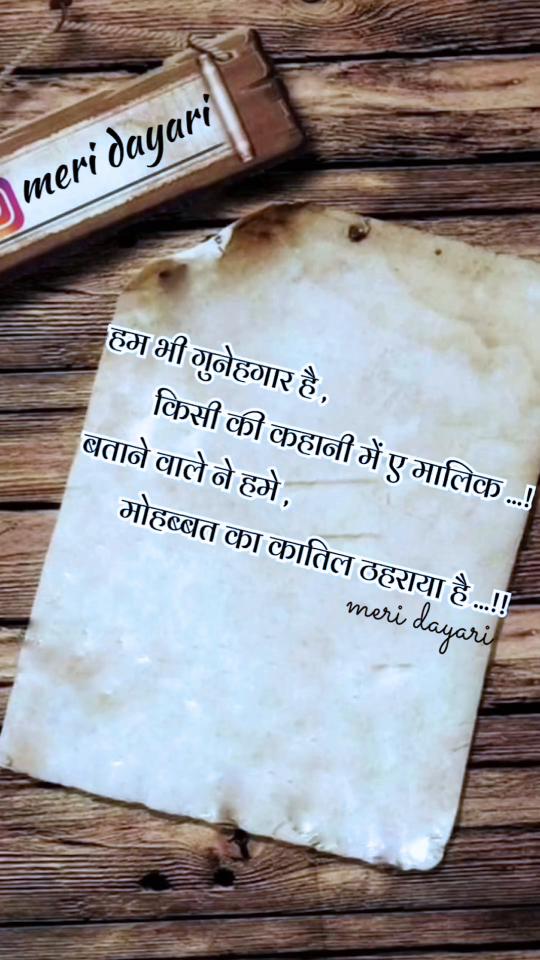 meri dayari
हम भी गुनेहगार है ,
किसी की कहानी में ए मालिक ...!
बताने वाले ने हमे ,
मोहब्बत का कातिल ठहराया है ...!!
meri dayari